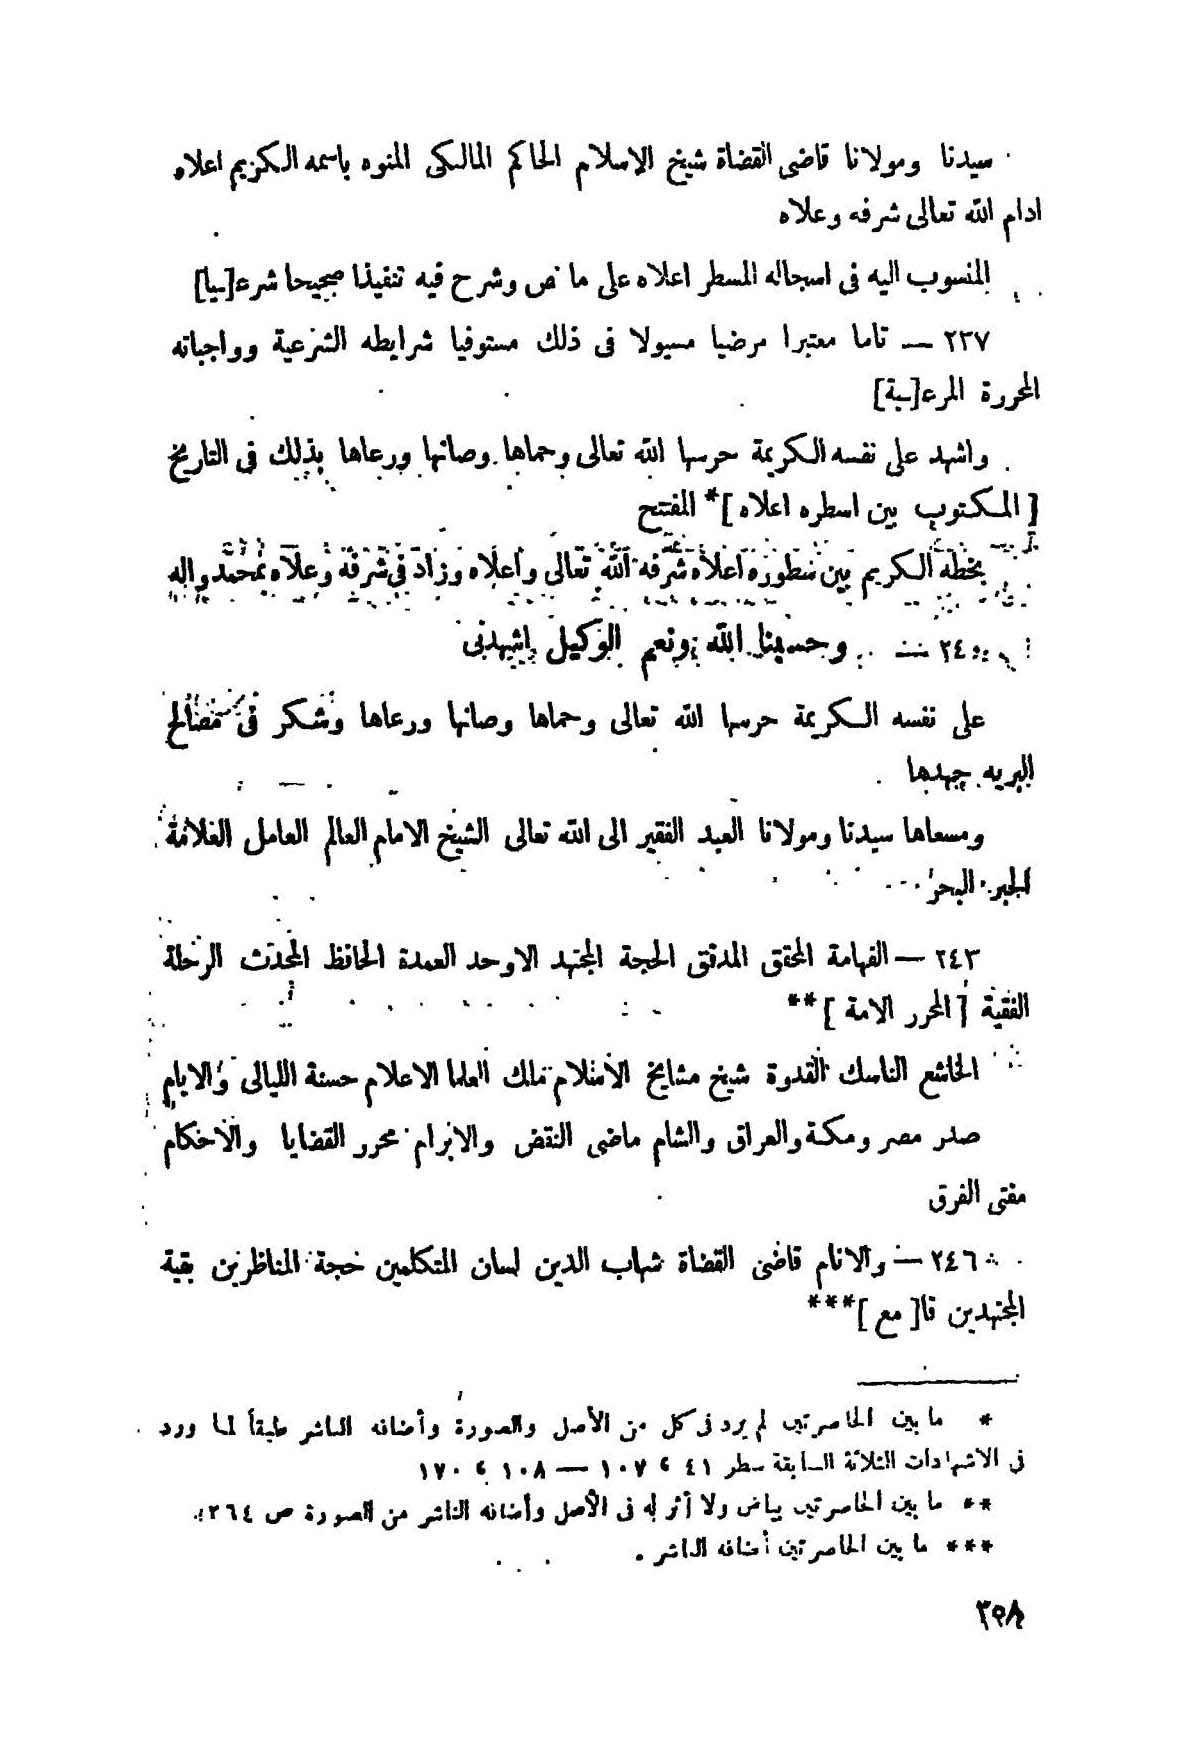 سيدنا ومولانا قاضى القضاة شيخ الاسلام الحاكم المالكى المنوه باسمه الكريم اعلاه
ادام الله تعالى شرفه وعلاه
المنسوب اليه فى اسجاله المسطر اعلاه على ما نص وشرح فيه تنفيذا صحيحا شرعـ[ـيا]
٢٣٧ — تاما معتبرا مرضيا مسبولا فى ذلك مستوفيا شرايطه الشرعية وواجباته
المحررة المرعـ[ـية]
واشهد على نفسه الكريمة حرسها الله تعالى وحماها وصانها ورعاها بذلك فى التاريخ
[ المكتوب بين اسطره اعلاه ]* المفتتح
بخطه الكريم بين سطوره اعلاه شرفه الله تعالى واعلاه وزاد فى شرفه وعلاه بمحمد واله
٢٤٠ — وحسبنا الله ونعم الوكيل اشهدنى
على نفسه الكريمة حرسها الله تعالى وحماها وصانها ورعاها وشكر فى مصالح
البريه جهدها
ومسعاها سيدنا ومولانا العبد الفقير الى الله تعالى الشيخ الامام العالم العامل العلامة
الحبر البحر
٢٤٣ — الفهامة المحقق المدقق الحجة المجتهد الاوحد العمدة الحافظ المحدث الرحلة
الفقية [ المحرر الامة ]**
الخاشع الناسك القدوة شيخ مشايخ الاسلام ملك العلما الاعلام حسنة الليالى والايام
صدر مصر ومكة والعراق والشام ماضى النقض والابرام محرر القضايا والاحكام
مفتى الفرق
٢٤٦ — والانام قاضى القضاة شهاب الدين لسان المتكلمين حجة المناظرين بقية
المجتهدين قا[ مع ]***
* ما بين الحاصرتين لم يرد فى كل من الأصل والصورة وأضافه الناشر طبقاً لما ورد
فى الاشهادات الثلاثة السابقة سطر ٤١ ، ١٠٧ — ١٠٨ ، ١٧٠
** ما بين الحاصرتين بياض ولا أثر له فى الأصل وأضافه الناشر من الصورة ص ٢٦٤
*** ما بين الحاصرتين أضافه الناشر .
٣٥٨